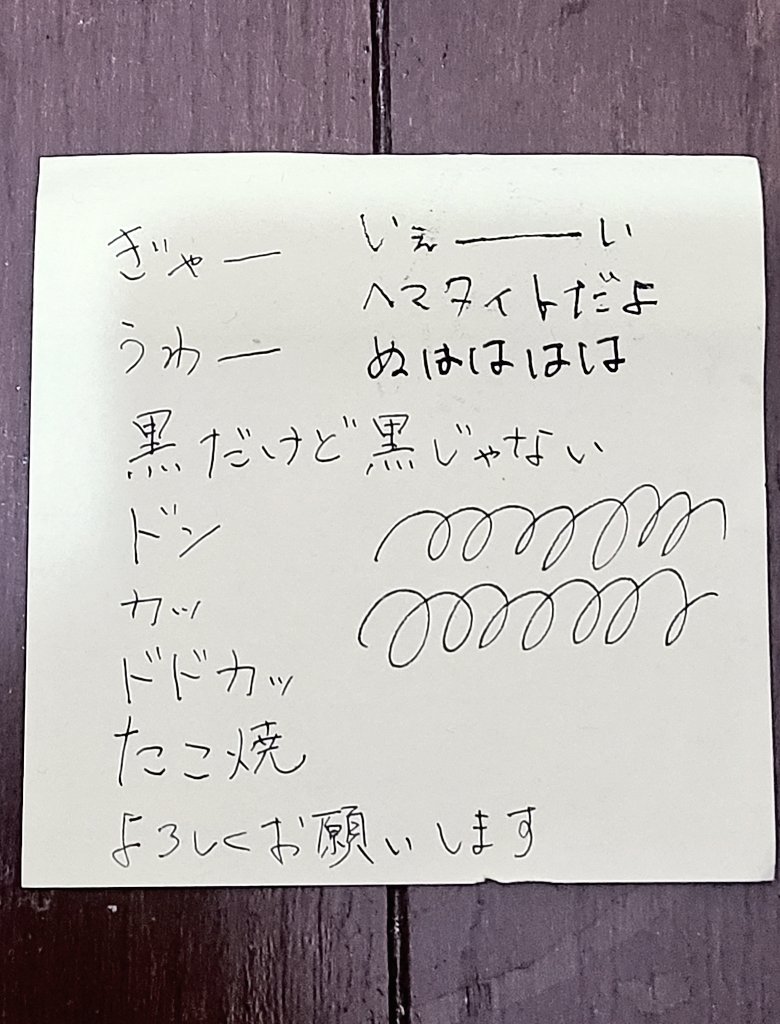 ぎゃー
いぇーーい
うわー
ヘマタイトだよ
ぬはははは
黒だけど黒じゃない
ドン
カッ
ドドカッ
たこ焼
よろしくお願いします